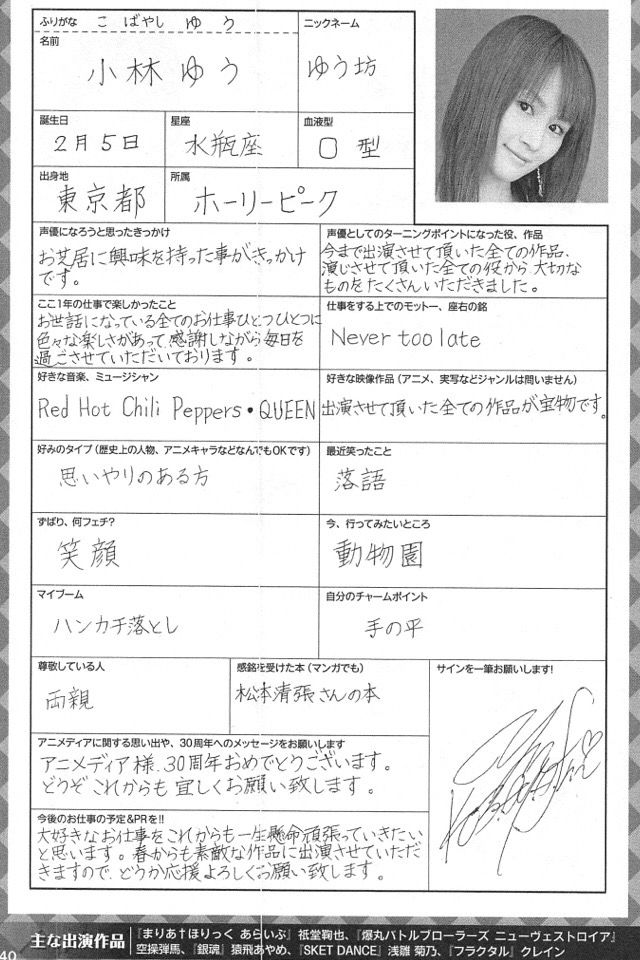 ふりがな こばやし ゆう
名前
小林ゆう
ニックネーム
ゆう坊
誕生日
2月5日
星座
水瓶座
血液型
O型
出身地
東京都
所属
ホーリーピーク
声優になろうと思ったきっかけ
お芝居に興味を持った事がきっかけ
です。
声優としてのターニングポイントになった役、作品
今まで出演させて頂いた全ての作品、
演じさせて頂いた全ての役から大切な
ものをたくさんいただきました。
ここ1年の仕事で楽しかったこと
お世話になっている全てのお仕事ひとつひとつに
色々な楽しさがあって感謝しながら毎日を
過ごさせていただいております。
仕事をする上でのモットー、座右の銘
Never too late
好きな音楽、ミュージシャン
Red Hot Chili Peppers・QUEEN
好きな映像作品(アニメ、実写などジャンルは問いません)
出演させて頂いた全ての作品が宝物です。
好みのタイプ(歴史上の人物、アニメキャラなどなんでもOKです)
思いやりのある方
最近笑ったこと
落語
ずばり、何フェチ?
笑顔
今、行ってみたいところ
動物園
マイブーム
ハンカチ落とし
自分のチャームポイント
手の平
尊敬している人
両親
感銘を受けた本(マンガでも)
松本清張さんの本
サインを一筆お願いします!
アニメディアに関する思い出や、30周年へのメッセージをお願いします
アニメディア様、30周年おめでとうございます。
どうぞこれからも宜しくお願い致します。
今後のお仕事の予定&PRを!!
大好きなお仕事をこれからも一生懸命頑張っていきたい
と思います。春からも素敵な作品に出演させていただ
きますので、どうか応援よろしくお願い致します。
主な出演作品
『まりあ†ほりっく あらいぶ』祇堂鞠也、『爆丸バトルブローラーズ ニューヴェストロイア』
空操弾馬、『銀魂』猿飛あやめ、『SKET DANCE』浅雛 菊乃、『フラクタル』クレイン
40